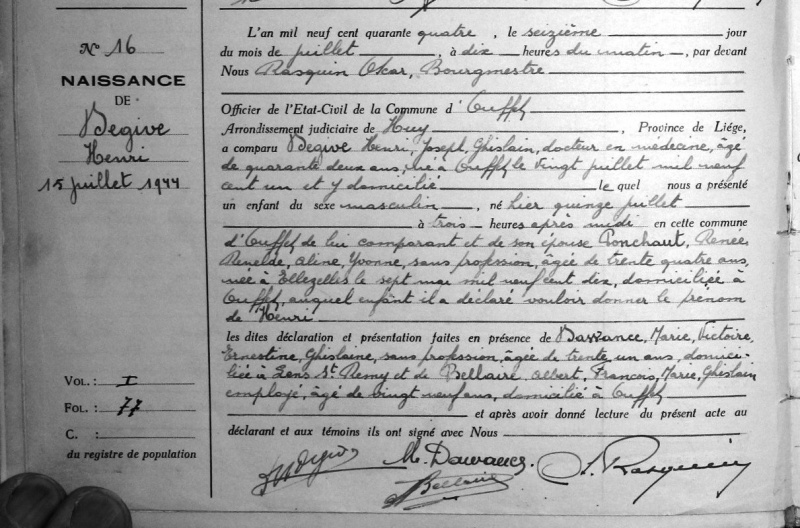 N° 16
NAISSANCE
DE
Degive
Henri
15 juillet 1944
VOL.: I
FOL.: 77
C. :
du registre de population
L'an mil neuf cent quarante quatre, le seizième jour
du mois de juillet, à dix heures du matin, par devant
Nous Rasquin Oscar, Bourgmestre
Officier de l'Etat-Civil de la Commune d'Ouffet
Arrondissement judiciaire de Huy, Province de Liége,
a comparu Degive Henri, Joseph, Ghislain, docteur en médecine, âgé
de quarante deux ans, né à Ouffet le vingt juillet mil neuf
cent un et y domicilié lequel nous a présenté
un enfant du sexe masculin, né hier quinze juillet
à trois heures après midi en cette commune
d'Ouffet de lui comparant et de son épouse Ponchaut, Renée
Renelde, Aline, Yvonne, sans profession, âgée de trente quatre ans,
née à Ellezelles le sept mai mil neuf cent dix, domiciliée à
Ouffet, auquel enfant il a déclaré vouloir donner le prénom
de Henri
les dites déclaration et présentation faites en présence de Dawance, Marie, Victoire,
Ernestine, Ghislaine, sans profession, âgée de trente un ans, domici-
liée à Lens St Remy et de Bellaire, Albert, François, Marie, Ghislain
employé, âgé de vingt neuf ans, domicilié à Ouffet
et après avoir donné lecture du présent acte au
déclarant et aux témoins ils ont signé avec Nous
M. Dawance. Rasquin
Bellaire